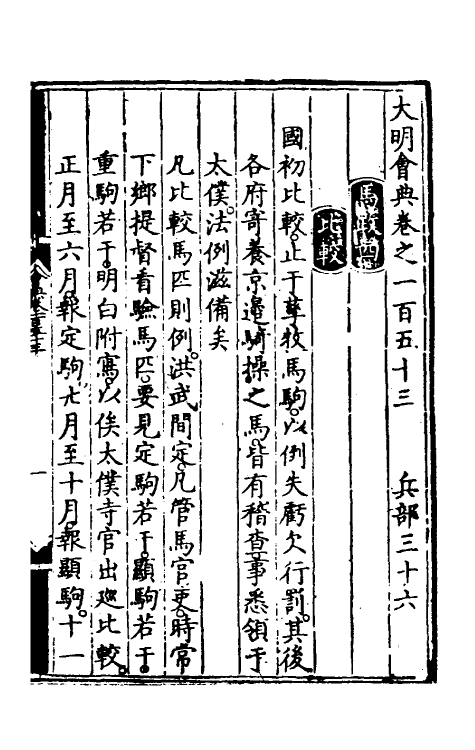 大明會典卷之一百五十三　兵部三十六
馬政四
比較
國初比較。止于孳牧馬駒。以例失虧欠行罰。其後
各府寄養京邊騎操之馬。皆有稽查。事悉領于
太僕。法例滋備矣
凡比較馬匹則例。洪武間定。凡管馬官吏。時常
下鄉提督看驗馬匹。要見定駒若干。顯駒若干。
重駒若干。明白附寫。以俟太僕寺官出廵比較。
正月至六月。報定駒。七月至十月。報顯駒。十一